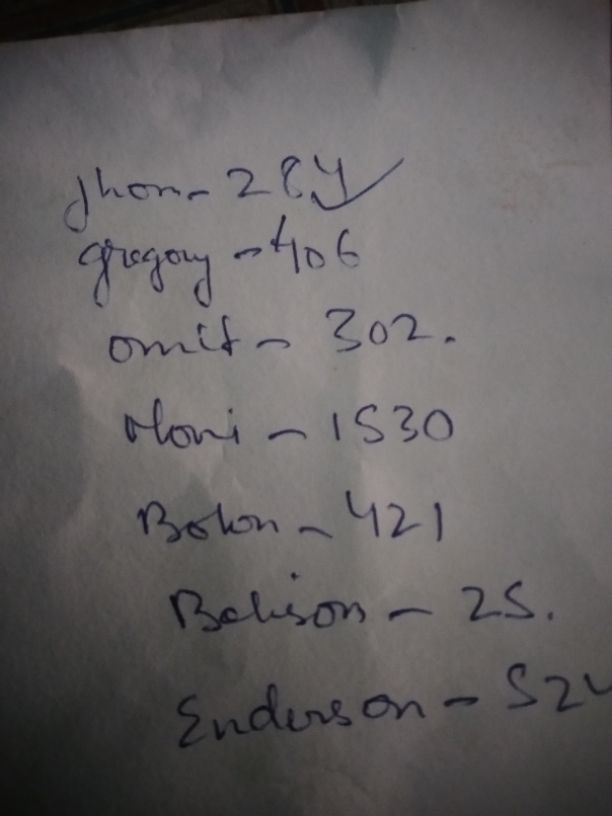 Jhon - 284
gregory - 406
omit - 302.
Moni - 1530
Bolon - 421
- 25.
Enderson -